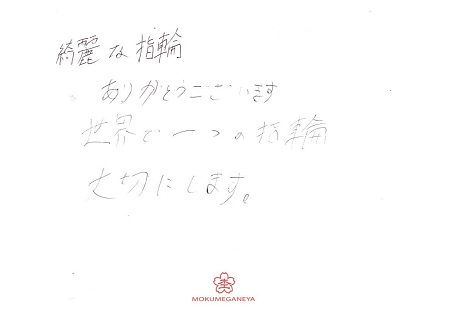 綺麗な指輪
ありがとうございます
世界で一つの指輪
大切にします。
MOKUMEGANEYA